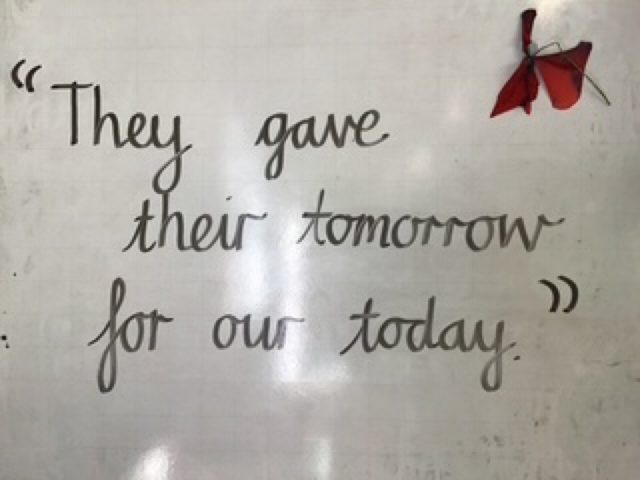 “They gave
their tomorrow
for our today.”